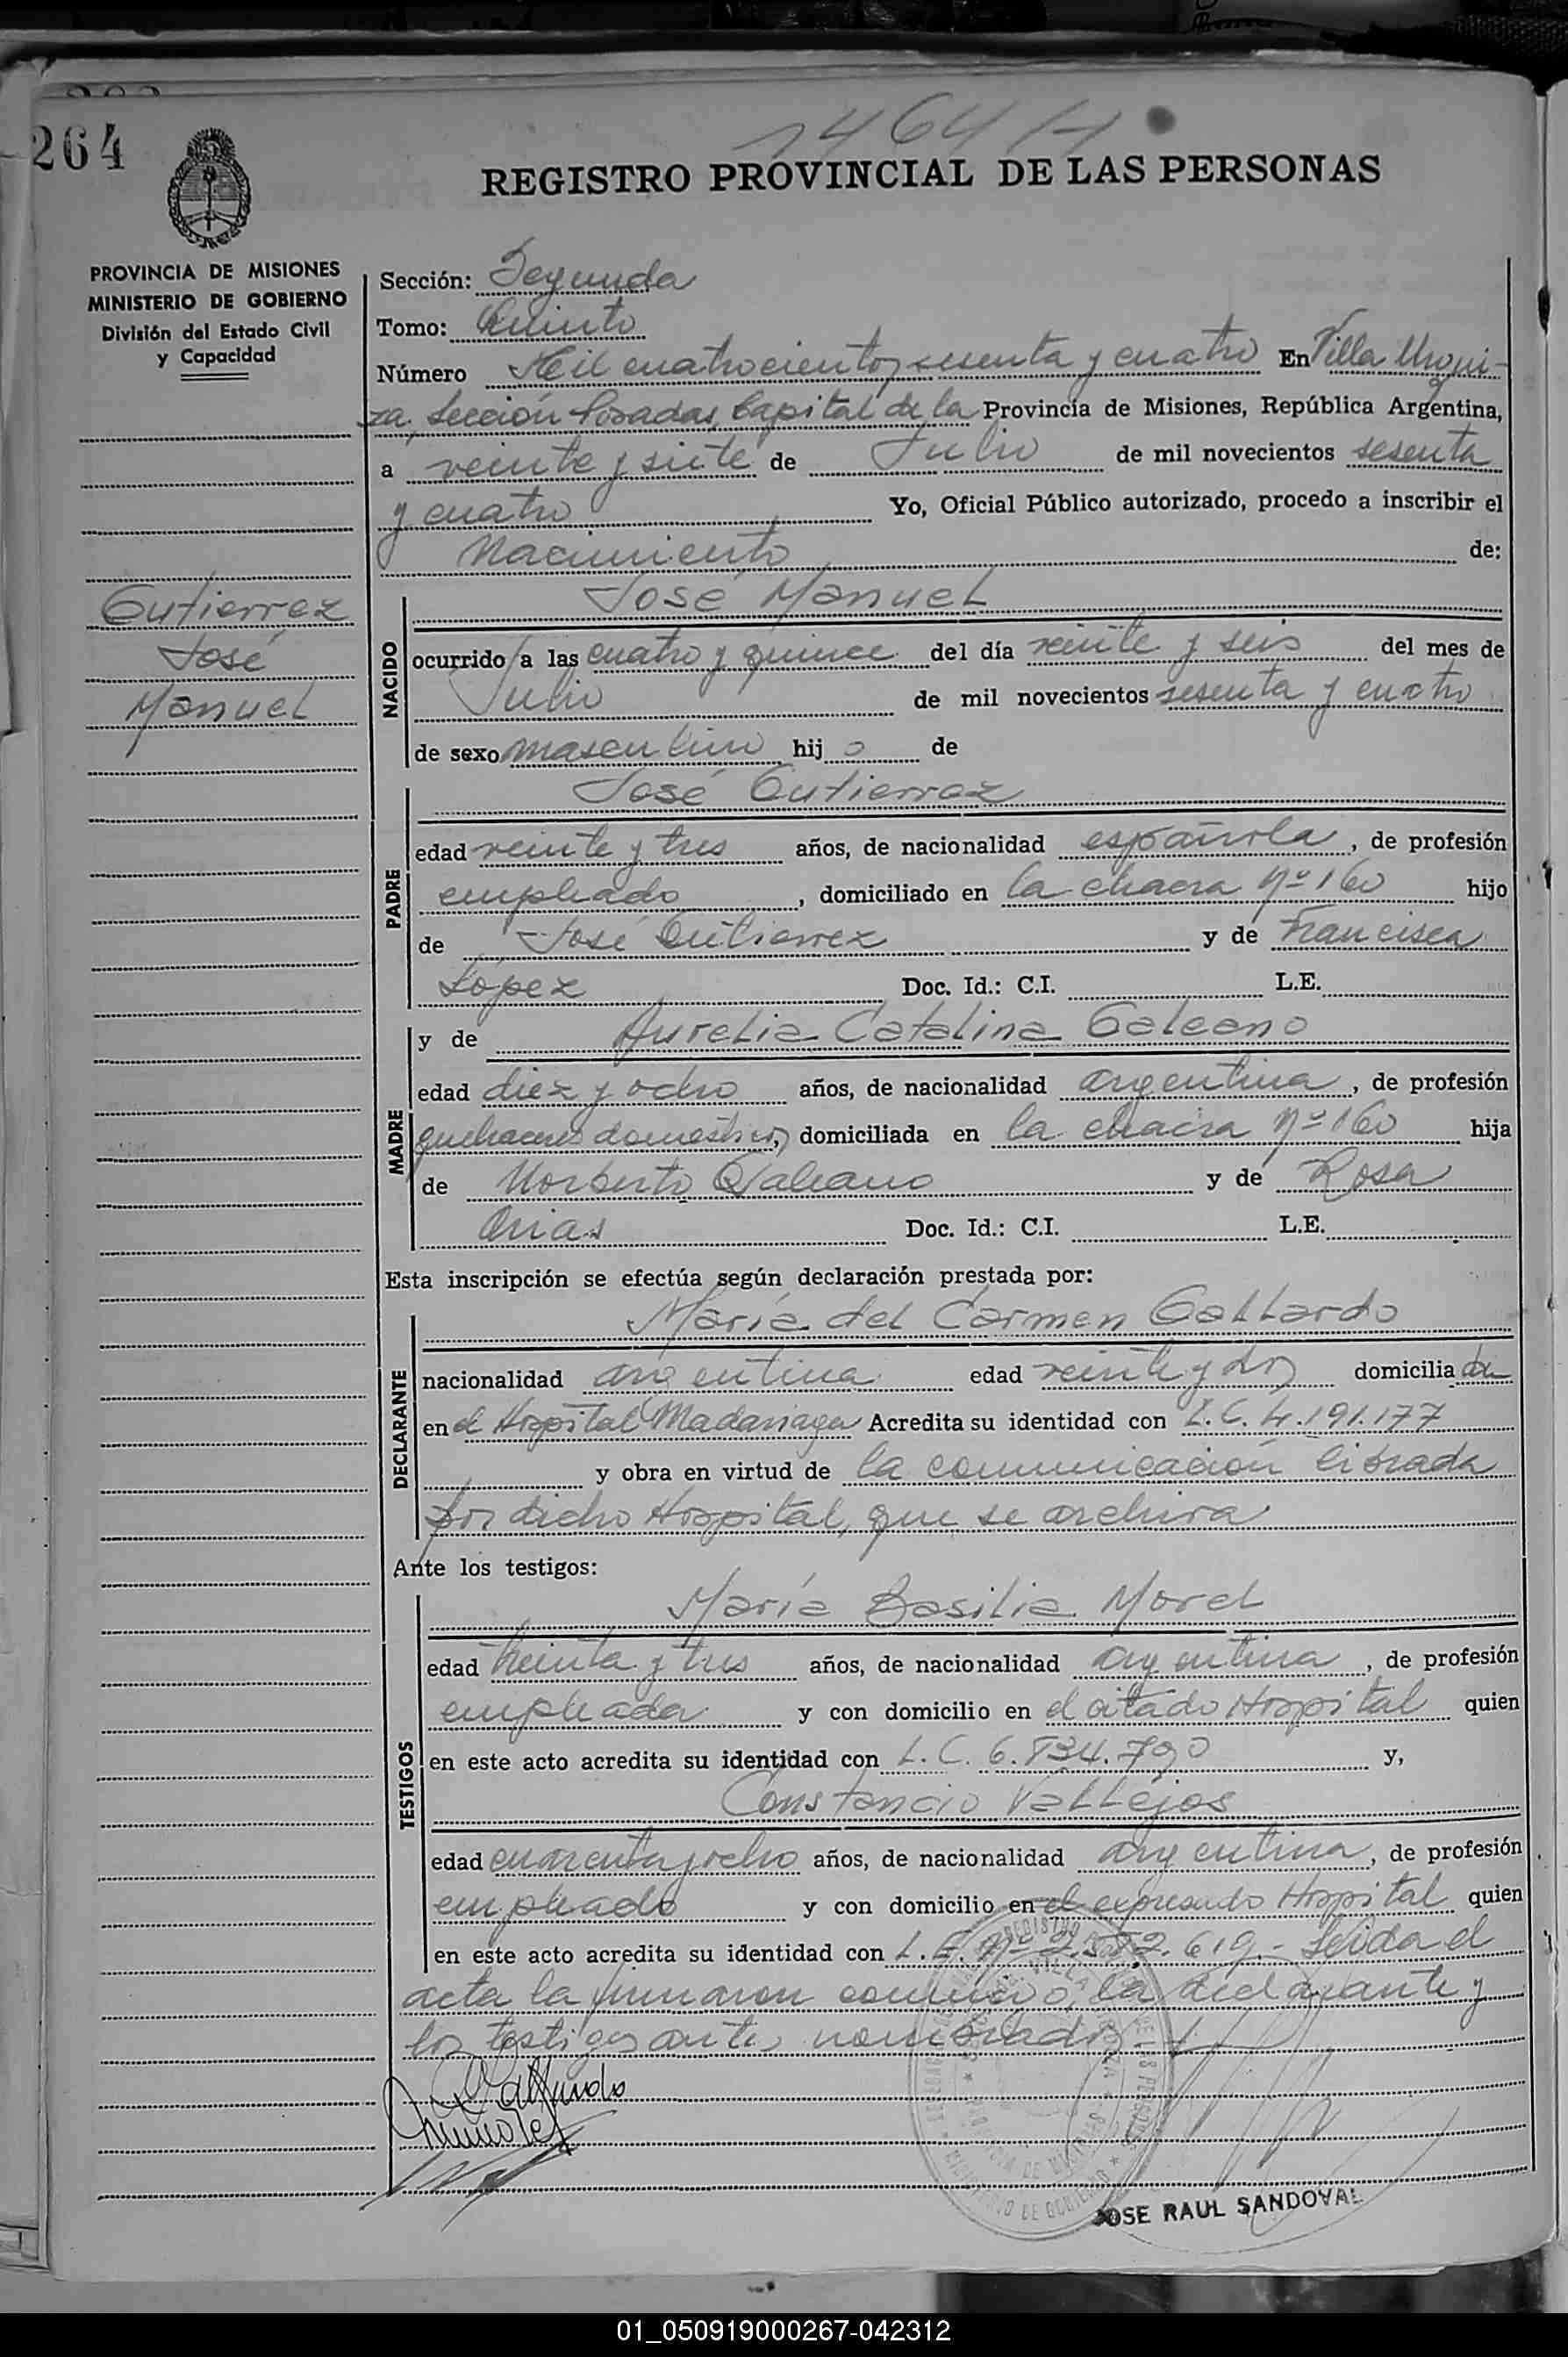 264
1464/4
REGISTRO PROVINCIAL DE LAS PERSONAS
PROVINCIA DE MISIONES
MINISTERIO DE GOBIERNO
División del Estado Civil
y Capacidad
Gutierrez
José
Manuel
Sección: Segunda
Tomo: Quinto
Número Mil cuatrocientos sesenta y cuatro En Villa Urqui-
za, Sección Posadas, Capital de la Provincia de Misiones, República Argentina,
a veinte y siete de Julio de mil novecientos sesenta
y cuatro Yo, Oficial Público autorizado, procedo a inscribir el
Nacimiento de:
NACIDO
José Manuel
ocurrido a las cuatro y quince del día veinte y seis del mes de
Julio de mil novecientos sesenta y cuatro
de sexo masculino hijo de
PADRE
José Gutierrez
edad veinte y tres años, de nacionalidad española, de profesión
empleado, domiciliado en la chacra Nº 160 hijo
de José Gutierrez y de Francisca
López Doc. Id.: C.I. L.E.
MADRE
y de Aurelia Catalina Galeano
edad diez y ocho años, de nacionalidad argentina, de profesión
quehaceres domesticos, domiciliada en la chacra Nº 160 hija
de Norberto Galeano y de Rosa
Arias Doc. Id.: C.I. L.E.
Esta inscripción se efectúa según declaración prestada por:
DECLARANTE
María del Carmen Gallardo
nacionalidad argentina edad veinte y dos domiciliada
en el Hospital Madariaga Acredita su identidad con L.C. 4.191.177
y obra en virtud de la comunicación librada
por dicho Hospital, que se archiva
Ante los testigos:
TESTIGOS
María Basilia Morel
edad treinta y tres años, de nacionalidad argentina, de profesión
empleada y con domicilio en el citado Hospital quien
en este acto acredita su identidad con L.C. 6.834.790 y,
Constancio Vallejos
edad cuarenta y ocho años, de nacionalidad argentina, de profesión
empleado y con domicilio en el expresado Hospital quien
en este acto acredita su identidad con L.E. Nº 2.552.619.- Leida el
acta la firmaron conmigo, la declarante y
los testigos antes nombrados
Gallardo
JOSE RAUL SANDOVAL
01_050919000267-042312